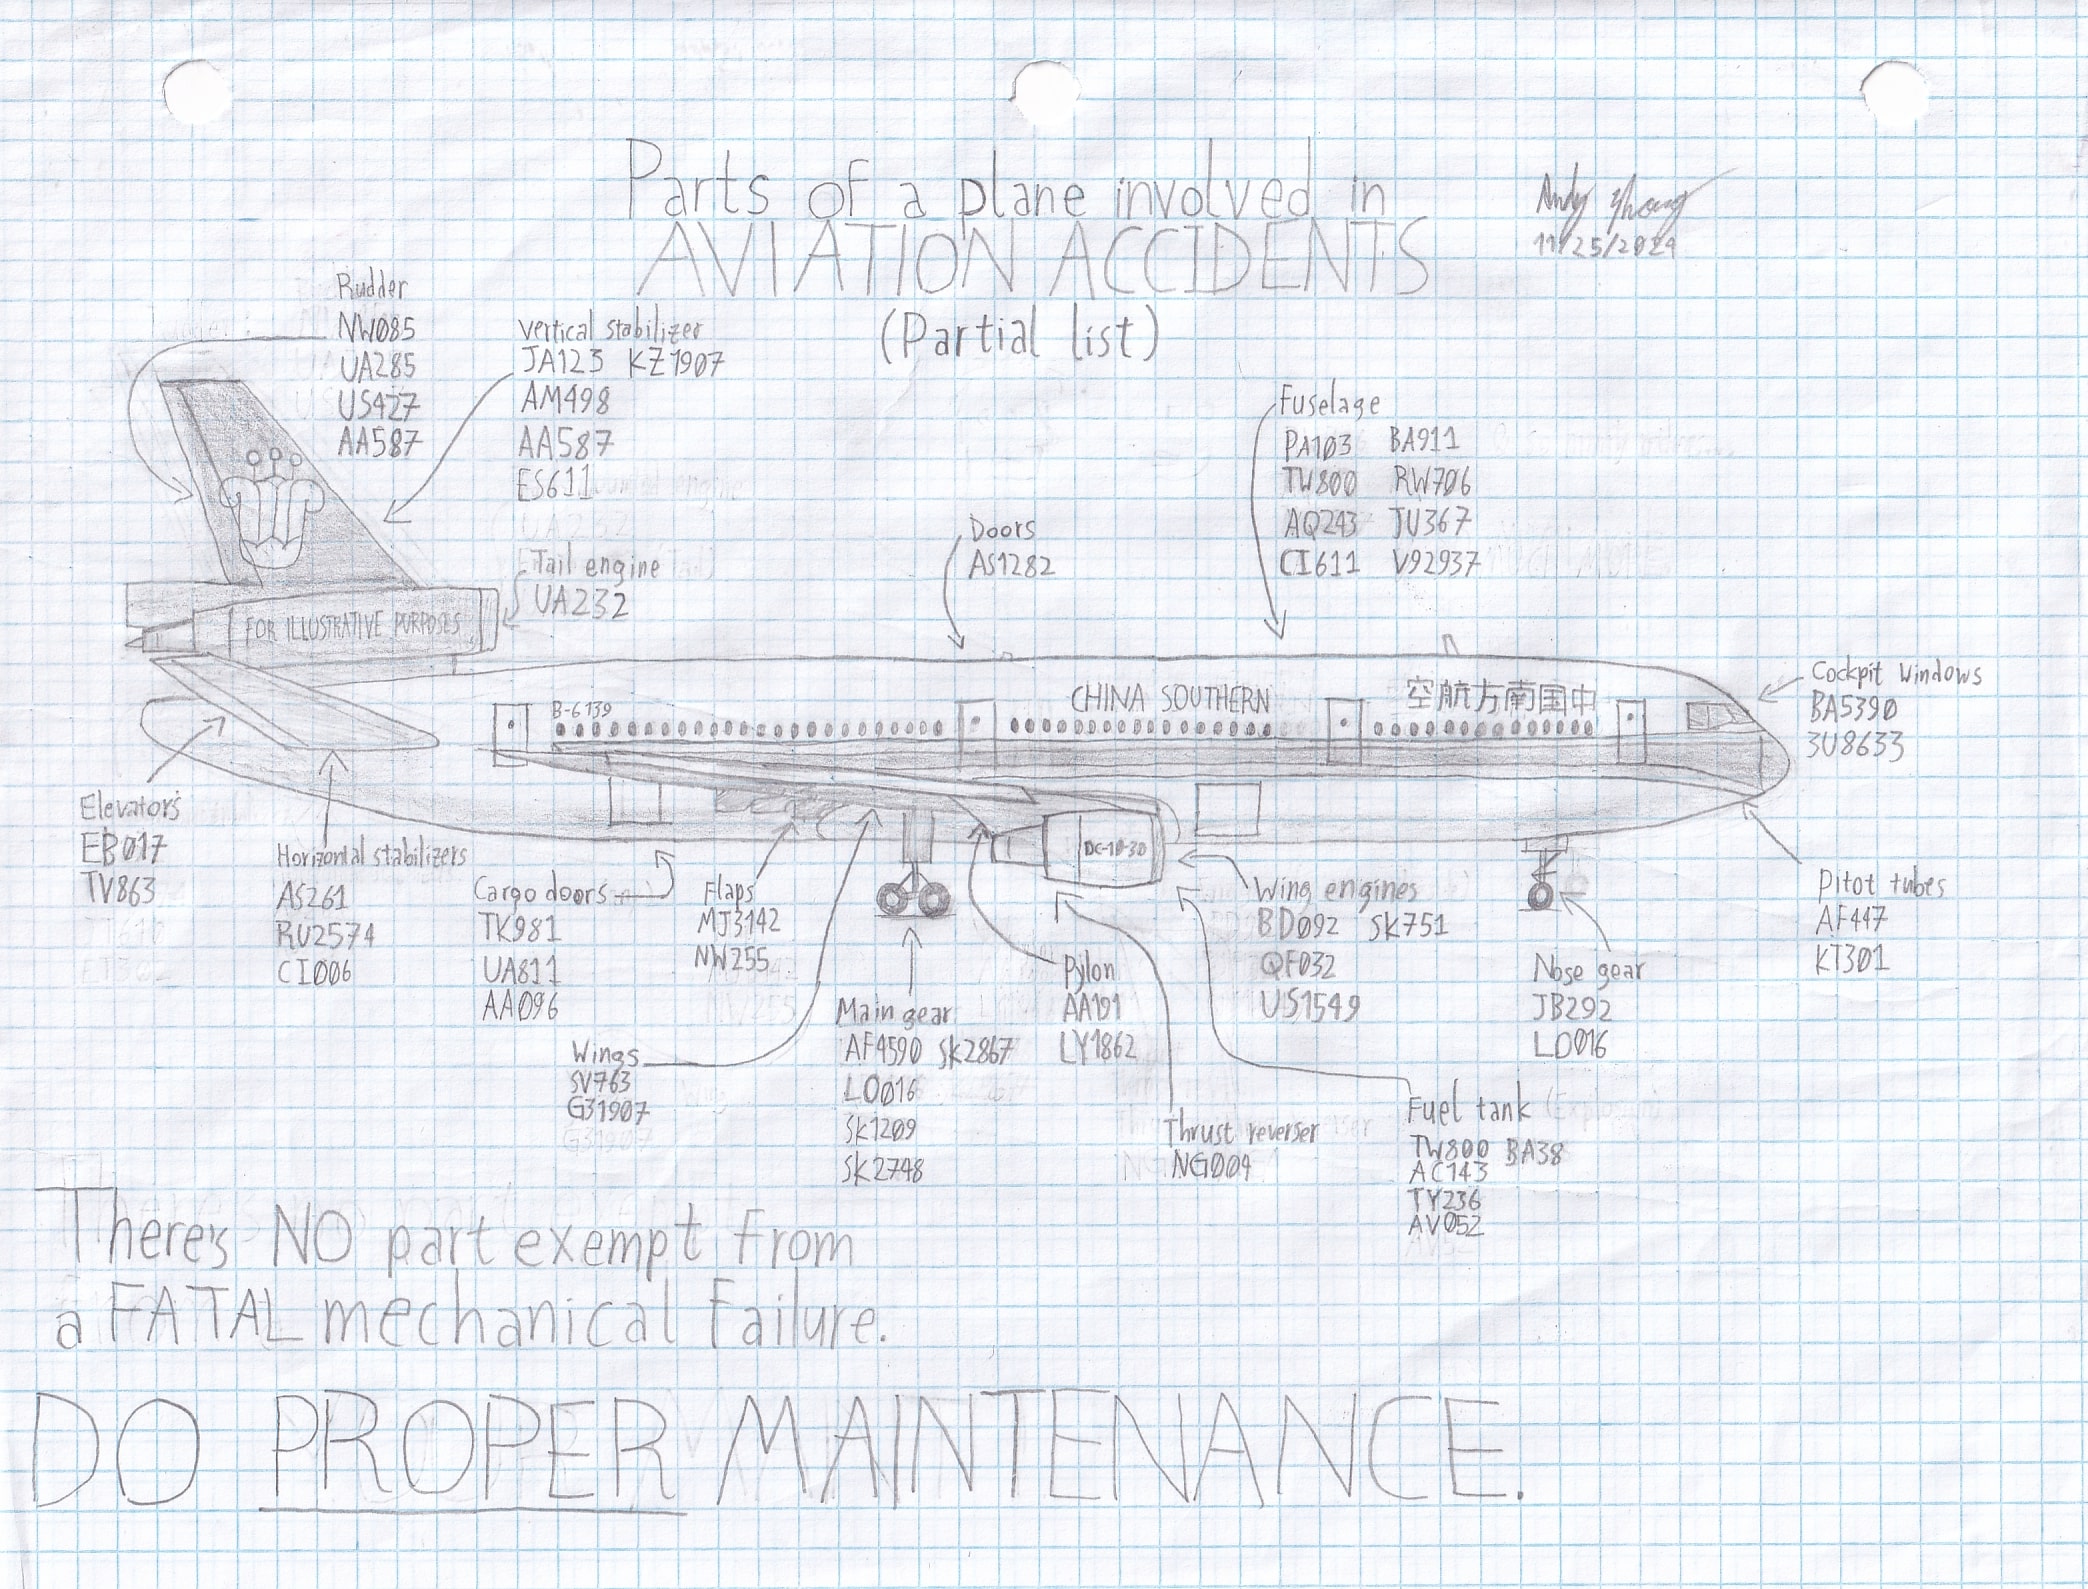 Parts of a plane involved in
AVIATION ACCIDENTS
(Partial list)
Andy
11/25/2024
Rudder
NW085
UA285
US427
AA587
Vertical stabilizer
JA123 KZ1907
AM498
AA587
ES611
Tail engine
UA232
FOR ILLUSTRATIVE PURPOSES
Doors
AS1282
Fuselage
PA103 BA911
TW800 RW706
AQ243 JU367
CI611 V92937
Cockpit windows
BA5390
3U8633
B-6139
CHINA SOUTHERN
空航方南国中
DC-10-30
Elevators
EB017
TV863
Horizontal stabilizers
AS261
RU2574
CI006
Cargo doors
TK981
UA811
AA096
Flaps
MJ3142
NW255
Wings
SV763
G31907
Main gear
AF4590 SK2867
LO016
SK1209
SK2748
Pylon
AA191
LY1862
Thrust reverser
NG004
Wing engines
BD092 SK751
QF032
US1549
Fuel tank
TW800 BA38
AC143
TY236
AV052
Nose gear
JB292
LO016
Pitot tubes
AF447
KT301
There's NO part exempt from
a FATAL mechanical failure.
DO PROPER MAINTENANCE.